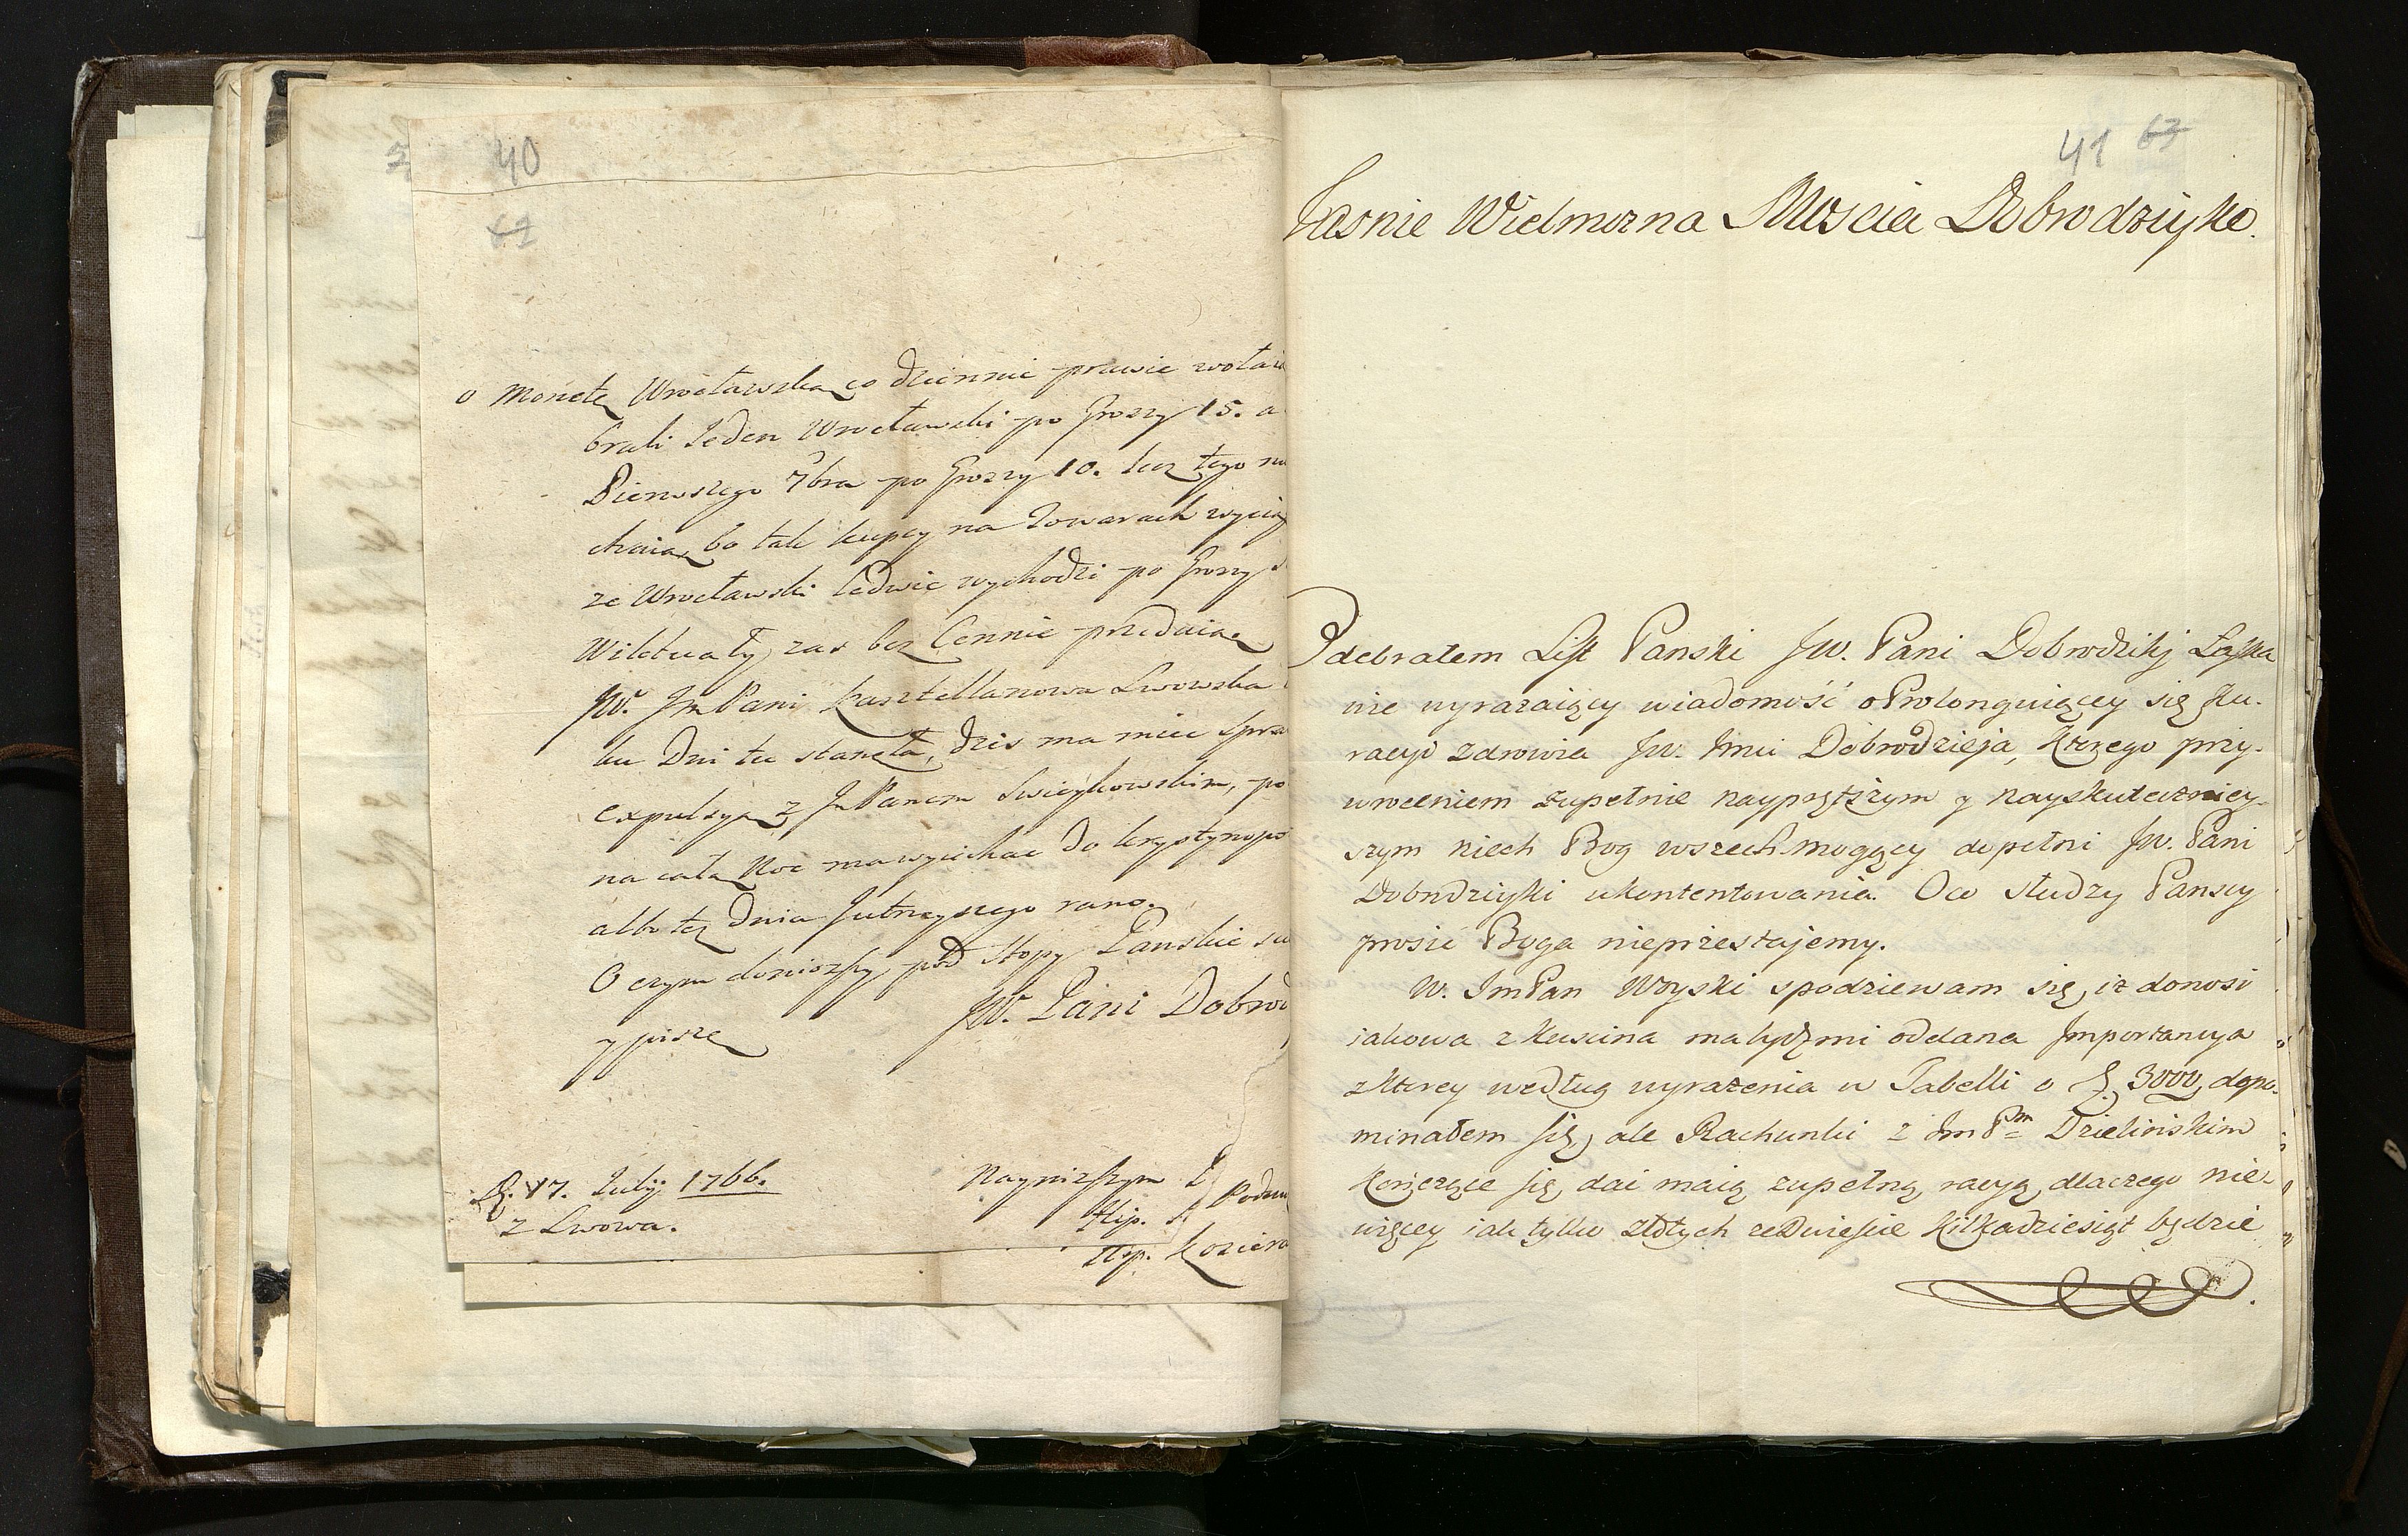 40
62
o Monetę Wrocławską co dziennie prawie wołaią
brali Jeden Wrocławski po Groszy 15. a
Pierwszego 7bra po Groszy 10. lecz tego
chcią, bo tak kupcy na Towarach
ze Wrocławski ledwie wychodzi po Groszy
Wiktuały zas bez Cennie przedaią
JW. JmPani Kasztellanowa Lwowska
ku Dni tu stanęła, dzis ma miec
expulsyą z JmPanem Swieykowskim, po
na całą Noc ma wyiechac do
albo też Dnia Jutrzeyszego rano.
O czym doniozszy, pod Stopy Panskie
y piszę JW. Pani
D. 17. July 1766. Nayniższym
z Lwowa.
41 63
Jasnie Wielmozna Moscia Dobrodziyko.
Odebrałem List Panski JW. Pani Dobrodziki Łaska
nie wyrazaiący wiadomość o Prolonguiącey się Ku-
racyi zdrowia JW. Jmci Dobrodzieja, ktrego przy-
wroceniem zupełnie nayprętszym y nayskuteczniey-
szym niech Bog wszechmogący dopełni JW. Pani
Dobrodziyki ukontentowania. Oco słudzy Panscy
prosić Boga nieprzestajemy.
W. ImPan Woyski spodziewam się, iz donosi
iakowa z Kuscina oddana Importancya
z ktrey według wyrażenia w Tabelli o 3000, dopo-
minałem się, ale Rachunki z Im Pm Dzielińskim
Kończące się, dai maią zupełną racyą, dlaczego nie-
więcey iak tylko złotych kilkadziesiąt będzie